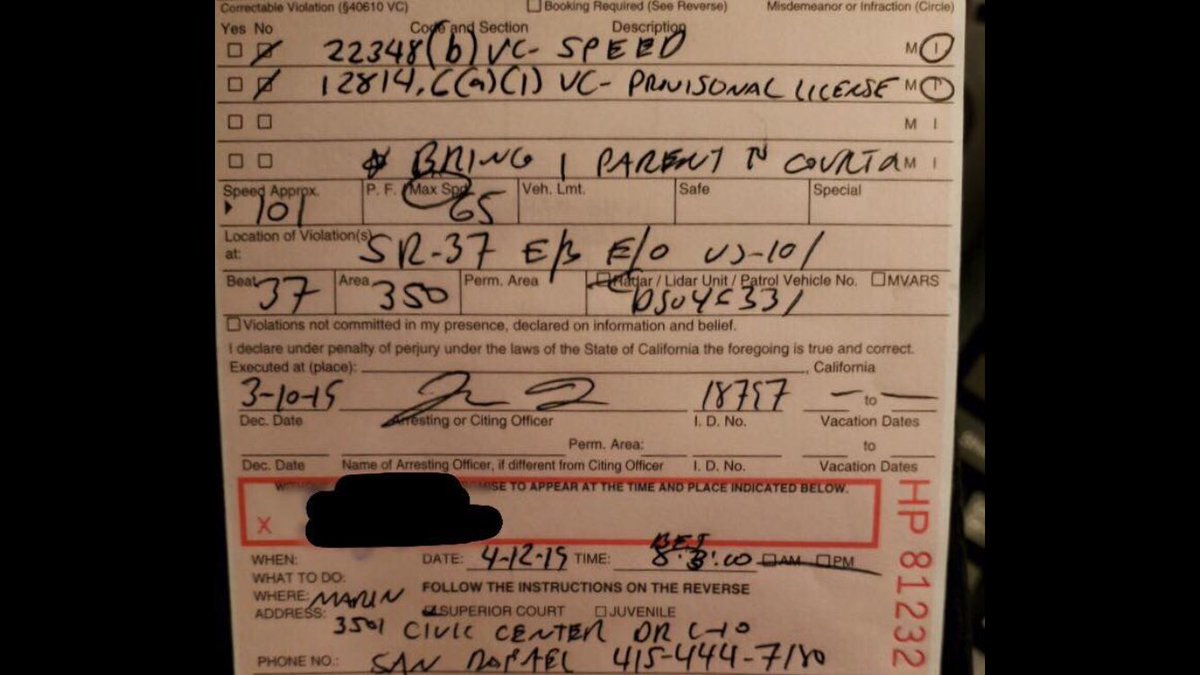 Correctable Violation (§40610 VC) ☐ Booking Required (See Reverse) Misdemeanor or Infraction (Circle)
Yes No Code and Section Description
22348(b) VC- SPEED M I
12814.6(a)(1) VC- PROVISONAL LICENSE M I
M I
BRING 1 PARENT COURT M I
Speed Approx. P. F. / Max Spd. Veh. Lmt. Safe Special
101 65
Location of Violation(s)
at: SR-37 E/B E/O US-101
Beat Area Perm. Area Radar / Lidar Unit / Patrol Vehicle No. ☐ MVARS
37 350
☐ Violations not committed in my presence, declared on information and belief.
I declare under penalty of perjury under the laws of the State of California the foregoing is true and correct.
Executed at (place): , California
3-10-19 18797 to
Dec. Date Arresting or Citing Officer I. D. No. Vacation Dates
Perm. Area: to
Dec. Date Name of Arresting Officer, if different from Citing Officer I. D. No. Vacation Dates
TO APPEAR AT THE TIME AND PLACE INDICATED BELOW.
X
WHEN: DATE: 4-12-19 TIME: BET 8:3:00 ☐ AM ☐ PM
WHAT TO DO: FOLLOW THE INSTRUCTIONS ON THE REVERSE
WHERE: MARIN SUPERIOR COURT ☐ JUVENILE
ADDRESS: 3501 CIVIC CENTER DR C-10
PHONE NO.: SAN RAFAEL 415-444-7180
HP 81232